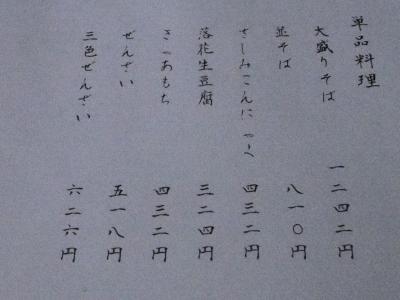 単品料理
大盛りそば 一二四二円
並そば 八一〇円
さしみこんにゃく 四三二円
落花生豆腐 三二四円
そばもち 四三二円
ぜんざい 五一八円
三色ぜんざい 六二六円